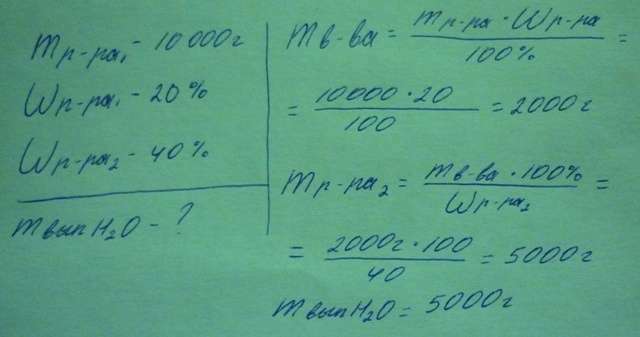 mр-ра₁ - 10 000г
Wр-ра₁ - 20%
Wр-ра₂ - 40%
mвып H₂O - ?
mв-ва = mр-ра · Wр-ра / 100% =
= 10000 · 20 / 100 = 2000г
mр-ра₂ = mв-ва · 100% / Wр-ра₂ =
= 2000г · 100 / 40 = 5000г
mвып H₂O = 5000г